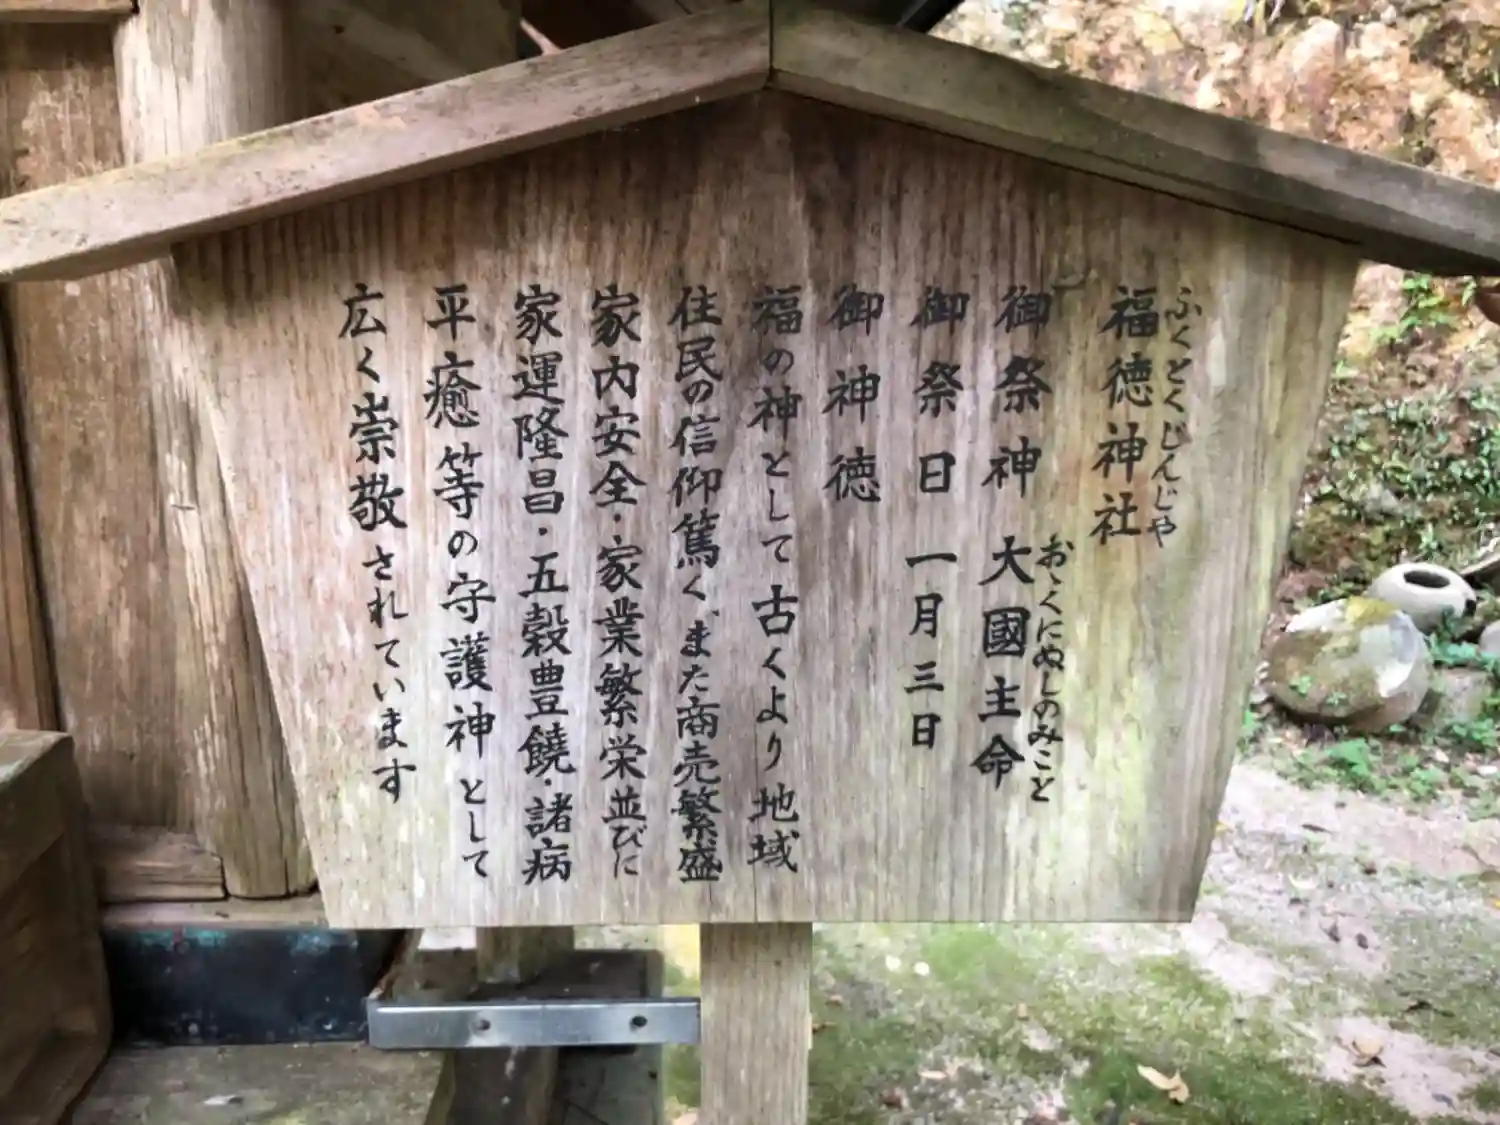 ふくとくじんじゃ
福徳神社
おゝくにぬしのみこと
御祭神 大國主命
御祭日 一月三日
御神徳
福の神として古くより地域
住民の信仰篤く、また商売繁盛
家内安全・家業繁栄並びに
家運隆昌・五穀豊饒・諸病
平癒等の守護神として
広く崇敬されています